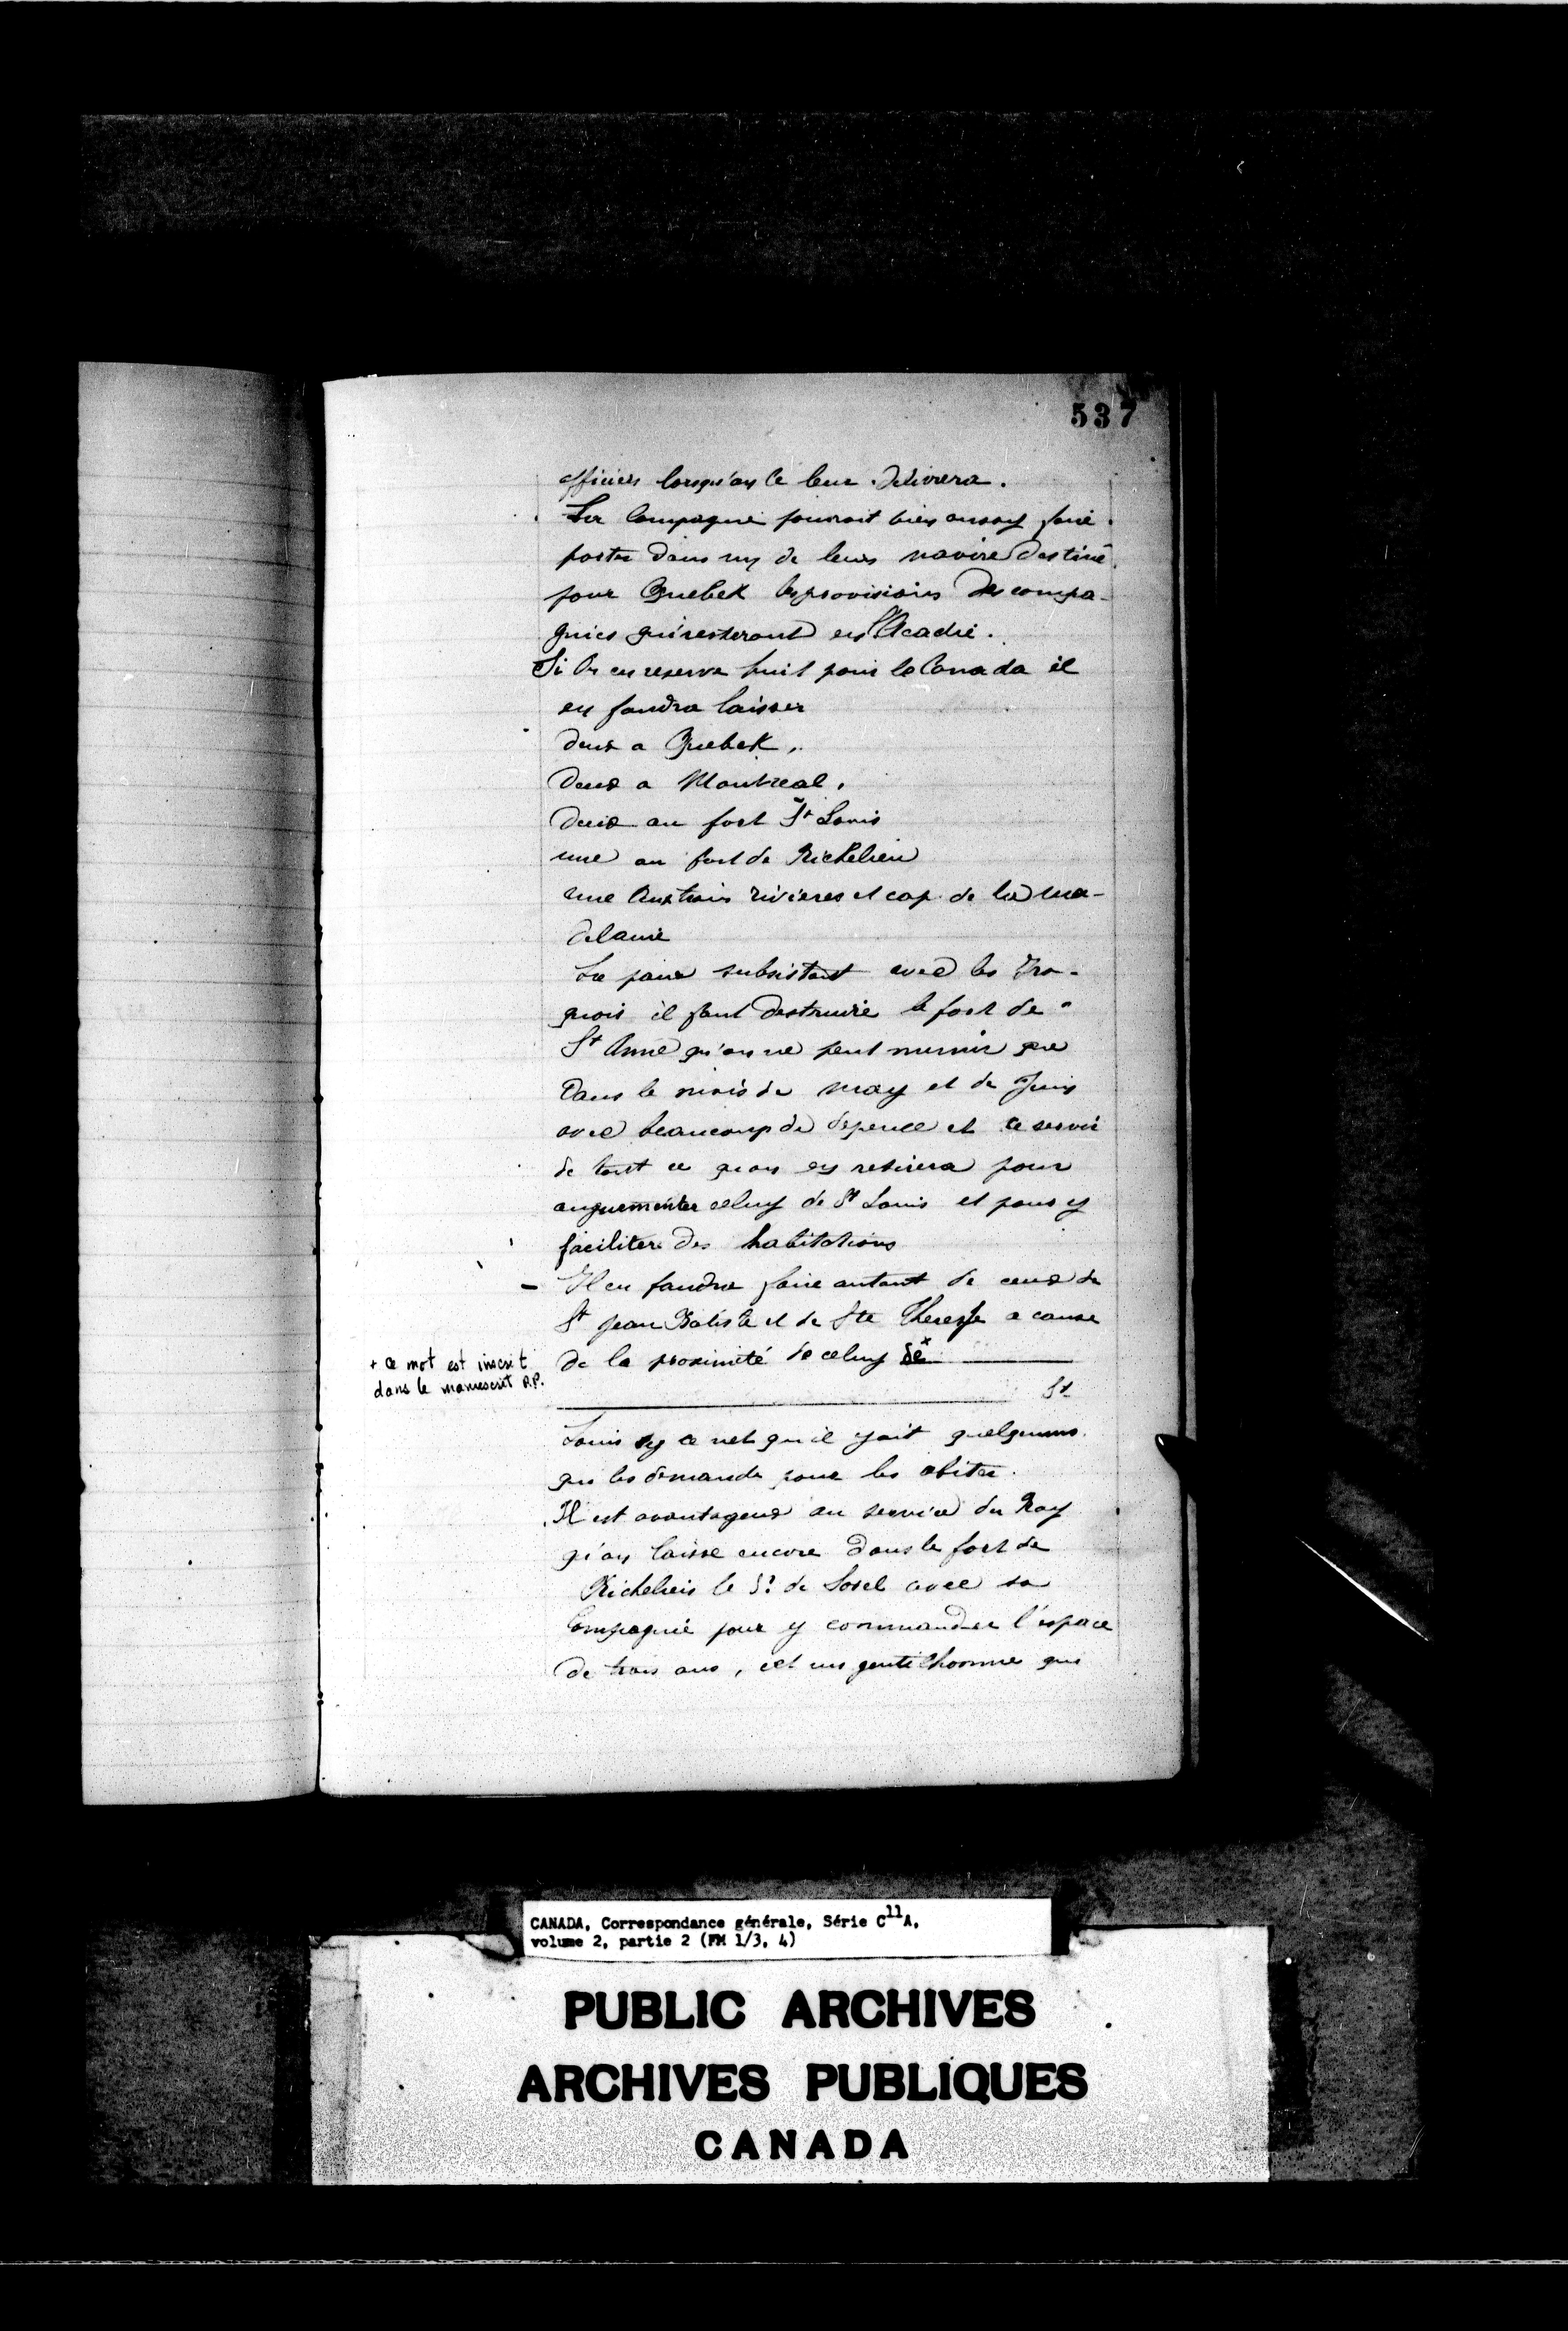 537
officiers lorsqu'on le leur delivrera.
La Compagnie pourroit bien aussy faire
porter dans un de leurs navire destiné
pour Quebek les provisions des compa-
gnies qui resteront en l'Acadie.
Si On en reserve huit pour le Canada il
en faudra laisser
deux a Quebek,
Deux a Montreal,
Deux au fort St Louis
une au fort de Richelieu
une Aux trois rivieres et cap de la Ma-
delaine
La paix subsistant avec les Iro-
quois il faut destruire le fort de
St Anne qu'on ne peut munir que
dans le mois de may et de Juin
avec beaucoup de depence et ce servir
de tout ce quon en retirera pour
augumenter celuy de St Louis et pour y
faciliter des habitations
- Il en faudra faire autant de ceux de
St Jean Batiste et de Ste Theresse a cause
de la proximité de celuy de+
+ ce mot est inscrit
dans le manuscrit P.P.
St
Louis sy ce net qu'il y ait quelquuns
qui les demande pour les abiter.
Il est avantageux au service du Roy
qu'on laisse encore dans le fort de
Richelieu le Sr de Sorel avec sa
Compagnie pour y commander l'espace
de trois ans, cet un gentilhomme qui
CANADA, Correspondance générale, Série C11A,
volume 2, partie 2 (FM 1/3, 4)
PUBLIC ARCHIVES
ARCHIVES PUBLIQUES
CANADA